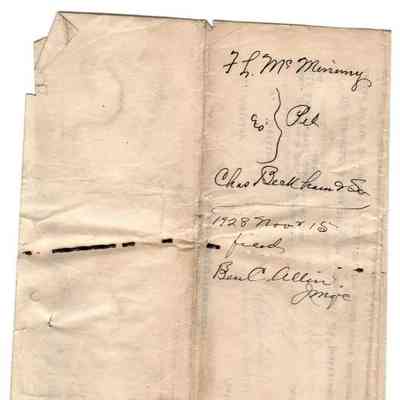 F L. Mc Minimy
vs } Pet
Chas Beckham & Co
1928 Nov 15
filed
Ben C Allin
JMCC